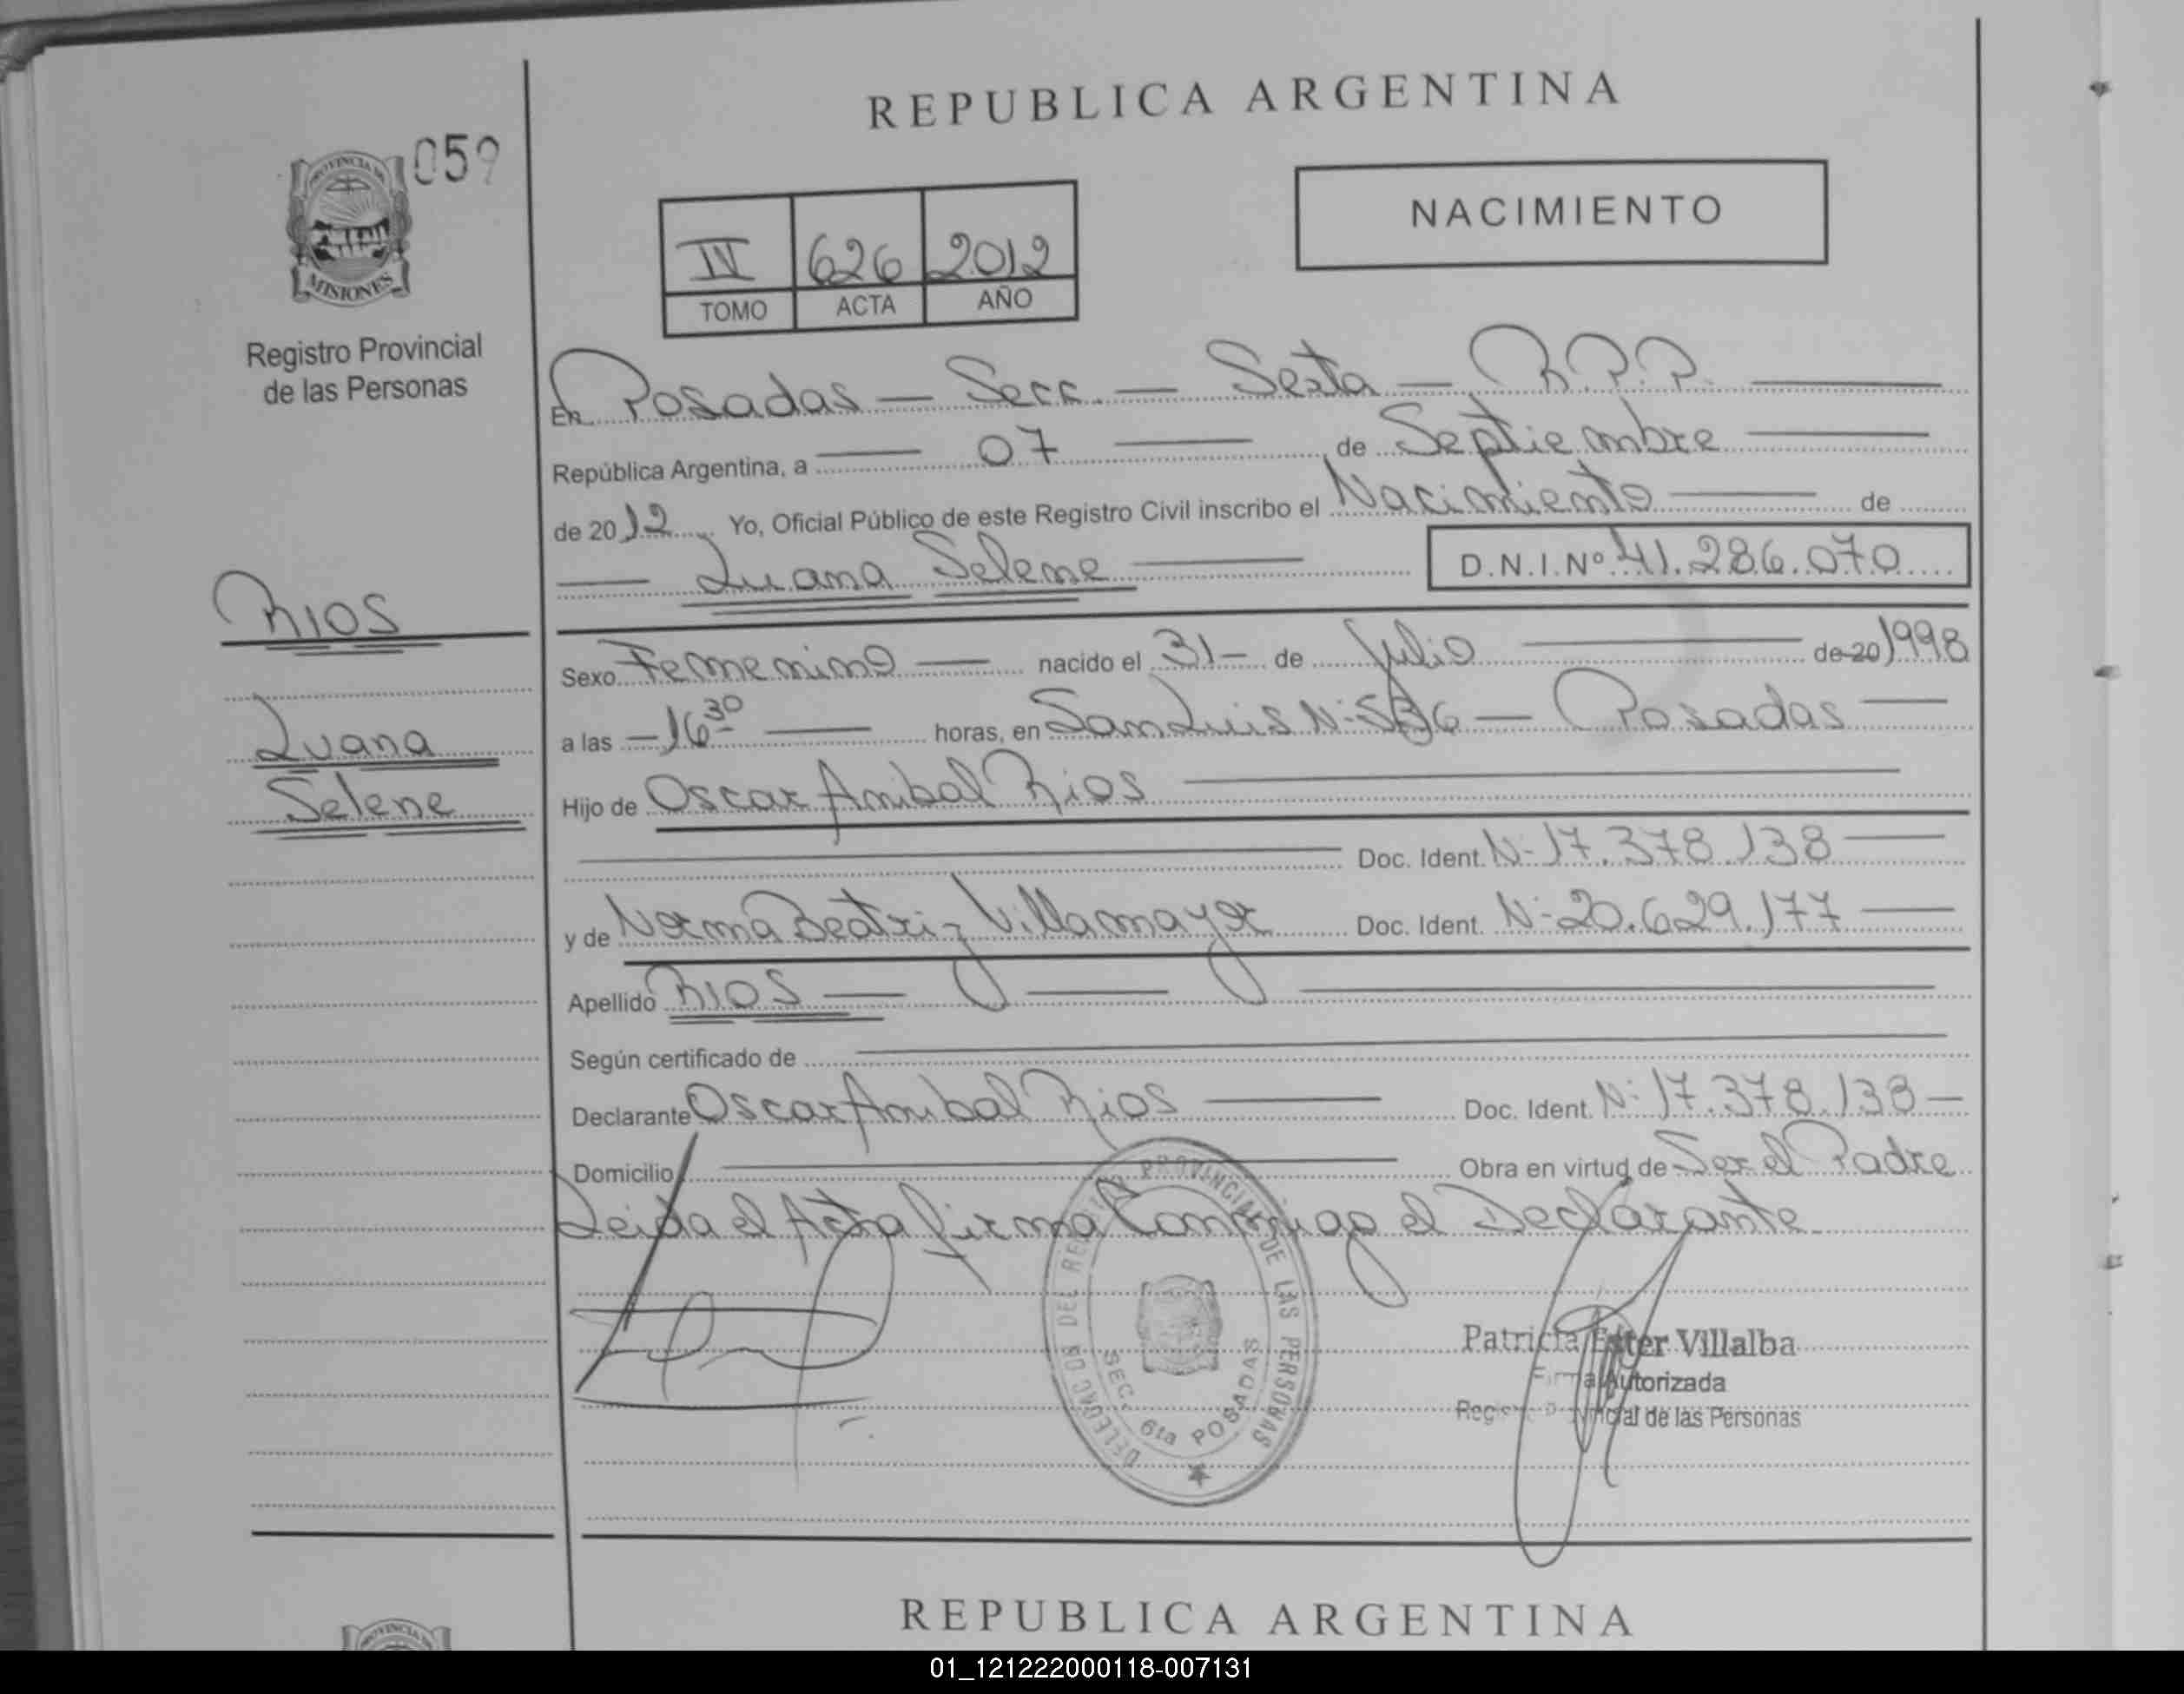 REPUBLICA ARGENTINA
059
PROVINCIA DE
MISIONES
Registro Provincial
de las Personas
NACIMIENTO
IV 626 2012
TOMO ACTA AÑO
En Posadas — Secc. — Sexta — R.P.P.
República Argentina, a 07 de Septiembre
de 2012 Yo, Oficial Público de este Registro Civil inscribo el Nacimiento de
Luana Selene D.N.I. Nº 41.286.070
RIOS
Luana
Selene
Sexo Femenino nacido el 31 - de Julio de 20 1998
a las - 16 30 horas, en San Luis N- 536 — Posadas
Hijo de Oscar Anibal Rios
Doc. Ident. N- 17.378.138
y de Norma Beatriz Villamayor Doc. Ident. N- 20.629.177
Apellido RIOS
Según certificado de
Declarante Oscar Anibal Rios Doc. Ident. N- 17.378.138 -
Domicilio Obra en virtud de Ser el Padre
Leida el Acta firma Conmigo el Declarante
DELEGACION DEL REGISTRO PROVINCIAL DE LAS PERSONAS
SEC. 6ta POSADAS
Patricia Ester Villalba
Firma Autorizada
Registro Provincial de las Personas
REPUBLICA ARGENTINA
01_121222000118-007131